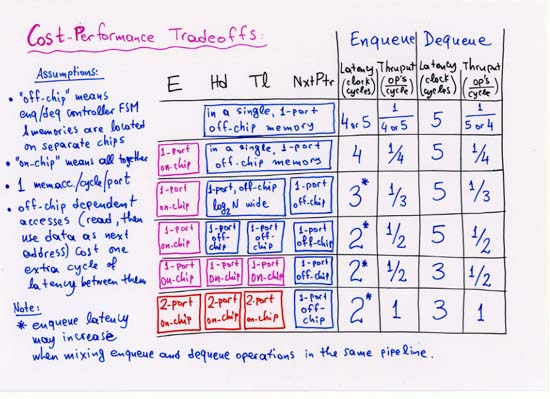 Cost-Performance Tradeoffs:
Assumptions:
• "off-chip" means
enq/deq controller FSM
& memories are located
on separate chips
• "on-chip" means all together
• 1 mem acc/cycle/port
• off-chip dependent
accesses (read, then
use data as next
address) cost one
extra cycle of
latency between them
Note:
* enqueue latency
may increase
when mixing enqueue and dequeue operations in the same pipeline.
Enqueue Dequeue
E Hd Tl NxtPtr Latency (clock cycles) Thruput (op's/cycle) Latency (clock cycles) Thruput (op's/cycle)
in a single, 1-port off-chip memory 4 or 5 1/4 or 5 5 1/5 or 4
1-port on-chip in a single, 1-port off-chip memory 4 1/4 5 1/4
1-port on-chip 1-port, off-chip log2 N wide 1-port off-chip 3* 1/3 5 1/3
1-port on-chip 1-port off-chip 1-port off-chip 1-port off-chip 2* 1/2 5 1/2
1-port on-chip 1-port on-chip 1-port on-chip 1-port off-chip 2* 1/2 3 1/2
2-port on-chip 2-port on-chip 2-port on-chip 1-port off-chip 2* 1 3 1